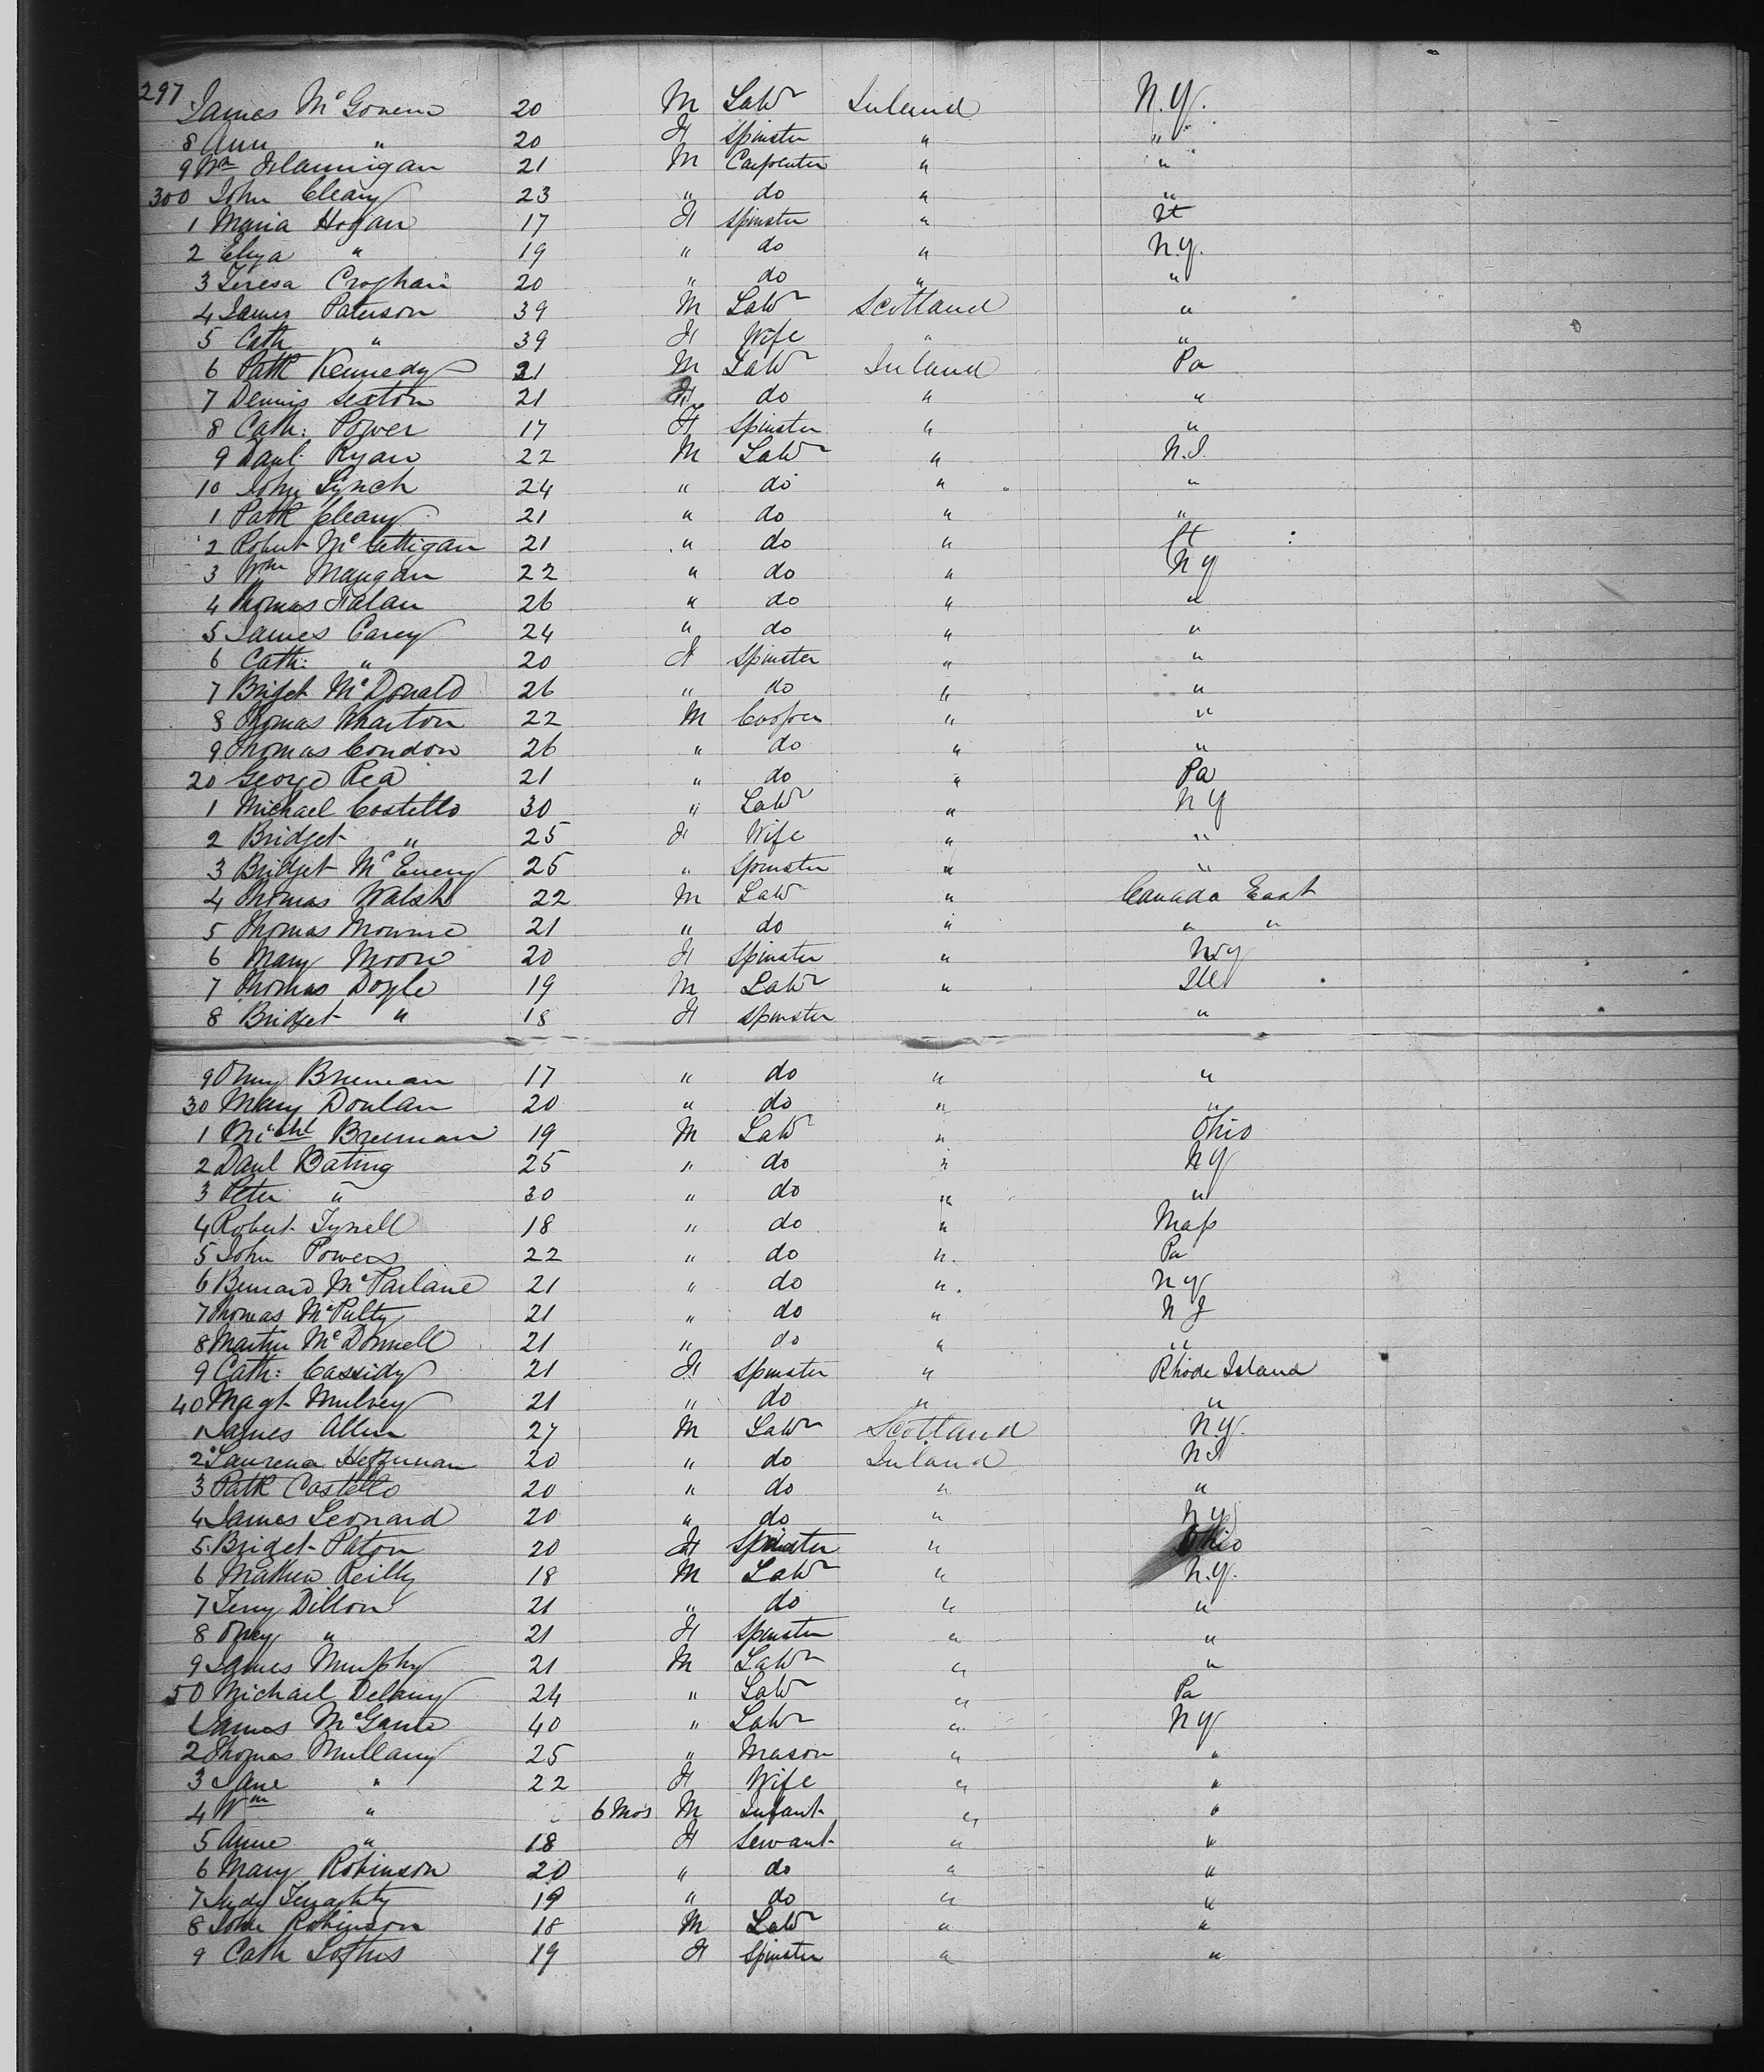 297 James McGovern 20 M Labr Ireland N.Y.
8 Ann " 20 F Spinster " "
9 Wm Flannigan 21 M Carpenter " "
300 John Cleary 23 " do " "
1 Maria Hogan 17 F Spinster "
2 Eliza " 19 " do " N.Y.
3 Teresa Croghan 20 " do " "
4 James Paterson 39 M Labr Scotland "
5 Cath " 39 F Wife " "
6 Patk Kennedy 21 M Labr Ireland Pa
7 Dennis Sexton 21 do " "
8 Cath: Power 17 F Spinster " "
9 Danl Ryan 22 M Labr " N.J.
10 John Lynch 24 " do " "
1 Patk Cleary 21 " do " "
2 Robert McCattigan 21 " do "
3 Wm Mangan 22 " do " NY
4 Thomas Falan 26 " do " "
5 James Carey 24 " do " "
6 Cath: " 20 F Spinster " "
7 Bridget McDonald 26 " do " "
8 Thomas Wharton 22 M Cooper " "
9 Thomas Condon 26 " do " "
20 George Rea 21 " do " Pa
1 Michael Costello 30 " Labr " NY
2 Bridget " 25 F Wife " "
3 Bridget McEneny 25 " Spinster " "
4 Thomas Walsh 22 M Labr " Canada East
5 Thomas 21 " do " " "
6 Mary Moore 20 F Spinster " NY
7 Thomas Doyle 19 M Labr " Ill
8 Bridget " 18 F Spinster "
9 Brennan 17 " do " "
30 Mary Donlan 20 " do " "
1 Michl Brennan 19 M Labr " Ohio
2 Danl Bating 25 " do " NY
3 Peter " 30 " do " "
4 Robert Tyrrell 18 " do " Mass
5 John Powers 22 " do " Pa
6 Bernard McParlane 21 " do " NY
7 Thomas McPalty 21 " do " NJ
8 Martin McDonnell 21 " do " "
9 Cath: Cassidy 21 F Spinster " Rhode Island
40 Magt Mulvey 21 " do " "
1 James Allen 27 M Labr Scotland N.Y.
2 Laurence Heffernan 20 " do Ireland NJ
3 Patk Costello 20 " do " "
4 James Leonard 20 " do " NY
5 Bridget Paton 20 F Spinster " Ohio
6 Mathew Reilly 18 M Labr " N.Y.
7 Terry Dillon 21 " do " "
8 " 21 F Spinster " "
9 James Murphy 21 M Labr " "
50 Michael Delany 24 " Labr " Pa
1 James McGann 40 " Labr " NY
2 Thomas Mullany 25 " Mason " "
3 Jane " 22 F Wife " "
4 Wm " 6 Mos M Infant " "
5 Anne " 18 F Servant " "
6 Mary Robinson 20 " do " "
7 Judy 19 " do " "
8 John Robinson 18 M Labr " "
9 Cath Loftus 19 F Spinster " "